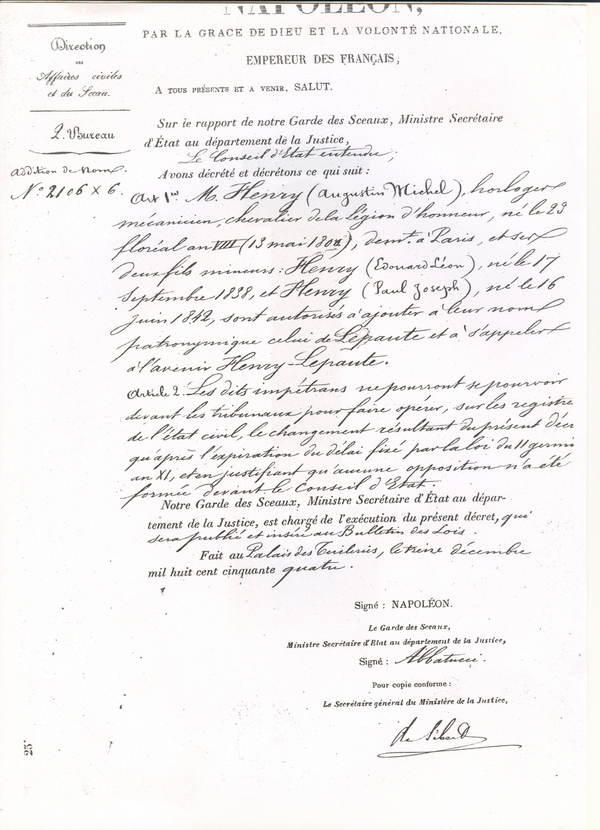 NAPOLÉON,
PAR LA GRACE DE DIEU ET LA VOLONTÉ NATIONALE,
EMPEREUR DES FRANÇAIS,
A TOUS PRÉSENTS ET A VENIR, SALUT.
Direction
DES
Affaires civiles
et du Sceau.
2. Bureau
Addition de Nom.
N° 2106 X 6.
Sur le rapport de notre Garde des Sceaux, Ministre Secrétaire
d'État au département de la Justice,
Le Conseil d'Etat entendu;
Avons décrété et décrétons ce qui suit:
Art 1er M. Henry (Augustin Michel), horloger
mécanicien, chevalier de la légion d'honneur, né le 23
floréal an VIII (13 mai 1800), demt. à Paris, et ses
deux fils mineurs: Henry (Edouard Léon), né le 17
Septembre 1838, et Henry (Paul Joseph), né le 16
Juin 1842, sont autorisés à ajouter à leur nom
patronymique celui de Lepaute et à s'appeler
à l'avenir Henry-Lepaute.
Article 2. Les dits impétrans ne pourront se pourvoir
devant les tribunaux pour faire opérer, sur les registre
de l'état civil, le changement résultant du présent décr
qu'après l'expiration du délai fixé par la loi du 11 germi
an XI, et en justifiant qu'aucune opposition n'a été
formée devant le Conseil d'Etat.
Notre Garde des Sceaux, Ministre Secrétaire d'État au dépar-
tement de la Justice, est chargé de l'exécution du présent décret, qui
sera publié et inséré au Bulletin des Lois.
Fait au Palais des Tuileries, le décembre
mil huit cent cinquante quatre.
Signé: NAPOLÉON.
Le Garde des Sceaux,
Ministre Secrétaire d'Etat au département de la Justice,
Signé: Abbatucci.
Pour copie conforme:
Le Secrétaire général du Ministère de la Justice,
de Sibert
25